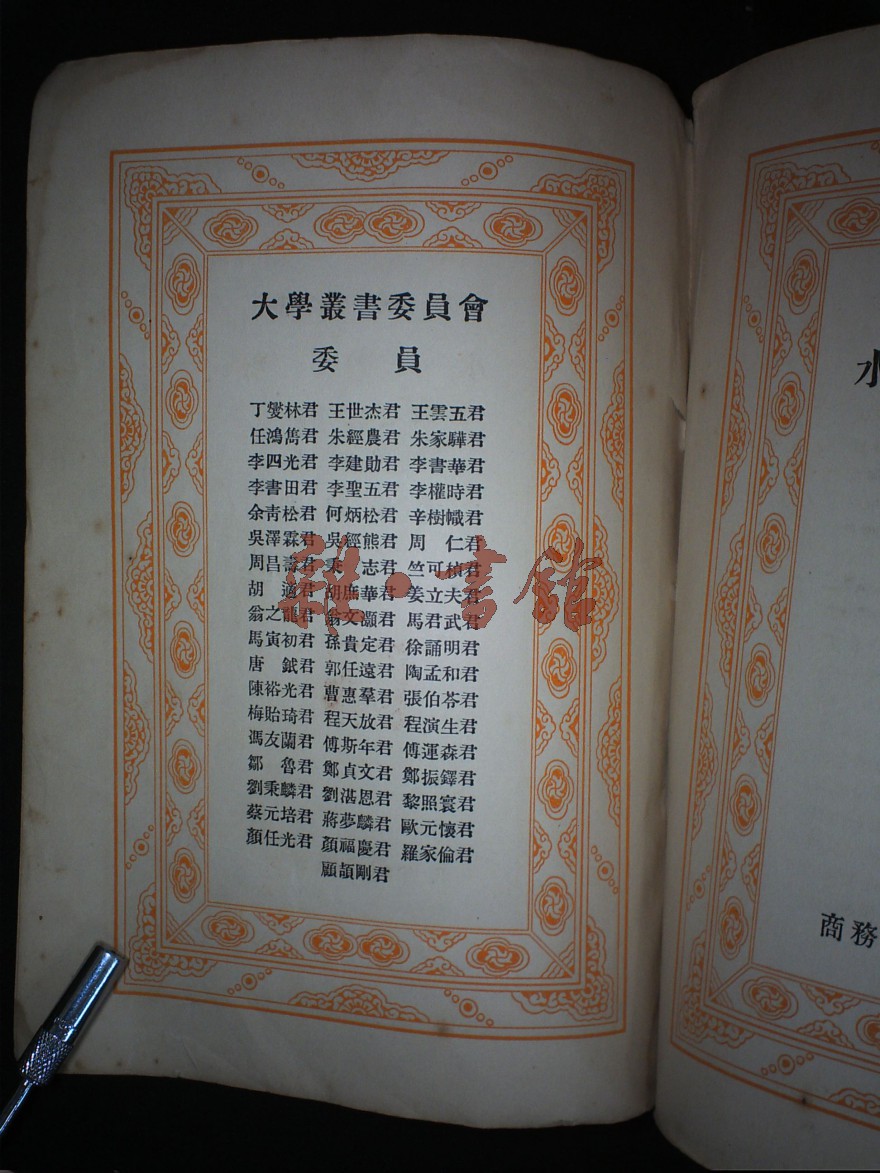 大學叢書委員會
委 員
丁燮林君 王世杰君 王雲五君
任鴻雋君 朱經農君 朱家驊君
李四光君 李建勛君 李書華君
李書田君 李聖五君 李權時君
余青松君 何炳松君 辛樹幟君
吳澤霖君 吳經熊君 周 仁君
周昌壽君 秉 志君 竺可楨君
胡 適君 胡庶華君 姜立夫君
翁之龍君 翁文灝君 馬君武君
馬寅初君 孫貴定君 徐誦明君
唐 鉞君 郭任遠君 陶孟和君
陳裕光君 曹惠羣君 張伯苓君
梅貽琦君 程天放君 程演生君
馮友蘭君 傅斯年君 傅運森君
鄒 魯君 鄭貞文君 鄭振鐸君
劉秉麟君 劉湛恩君 黎照寰君
蔡元培君 蔣夢麟君 歐元懷君
顏任光君 顏福慶君 羅家倫君
顧頡剛君
水
商務